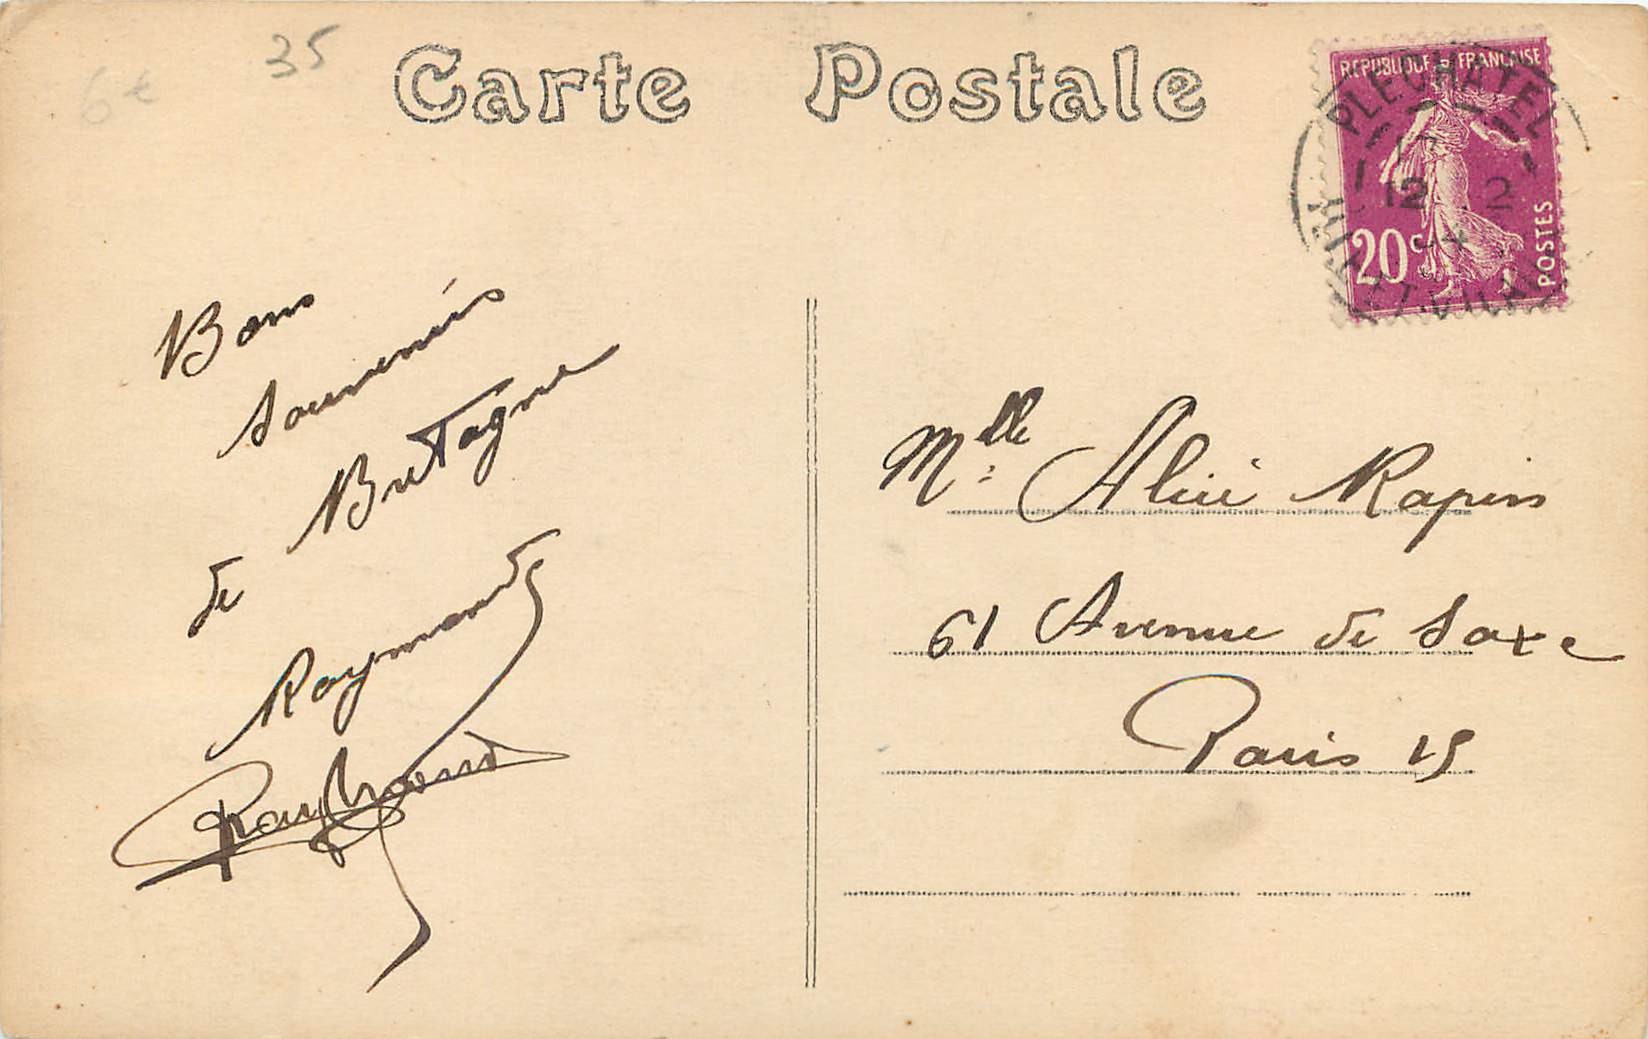 6€
35
Carte Postale
REPUBLIQUE FRANÇAISE
PLECHATEL
12 2
20c
POSTES
ILLE-ET-VILAINE
Bons
souvenirs
de Bretagne
Raymond
Raymond
Mlle Alice Rapin
61 Avenue de Saxe
Paris 15